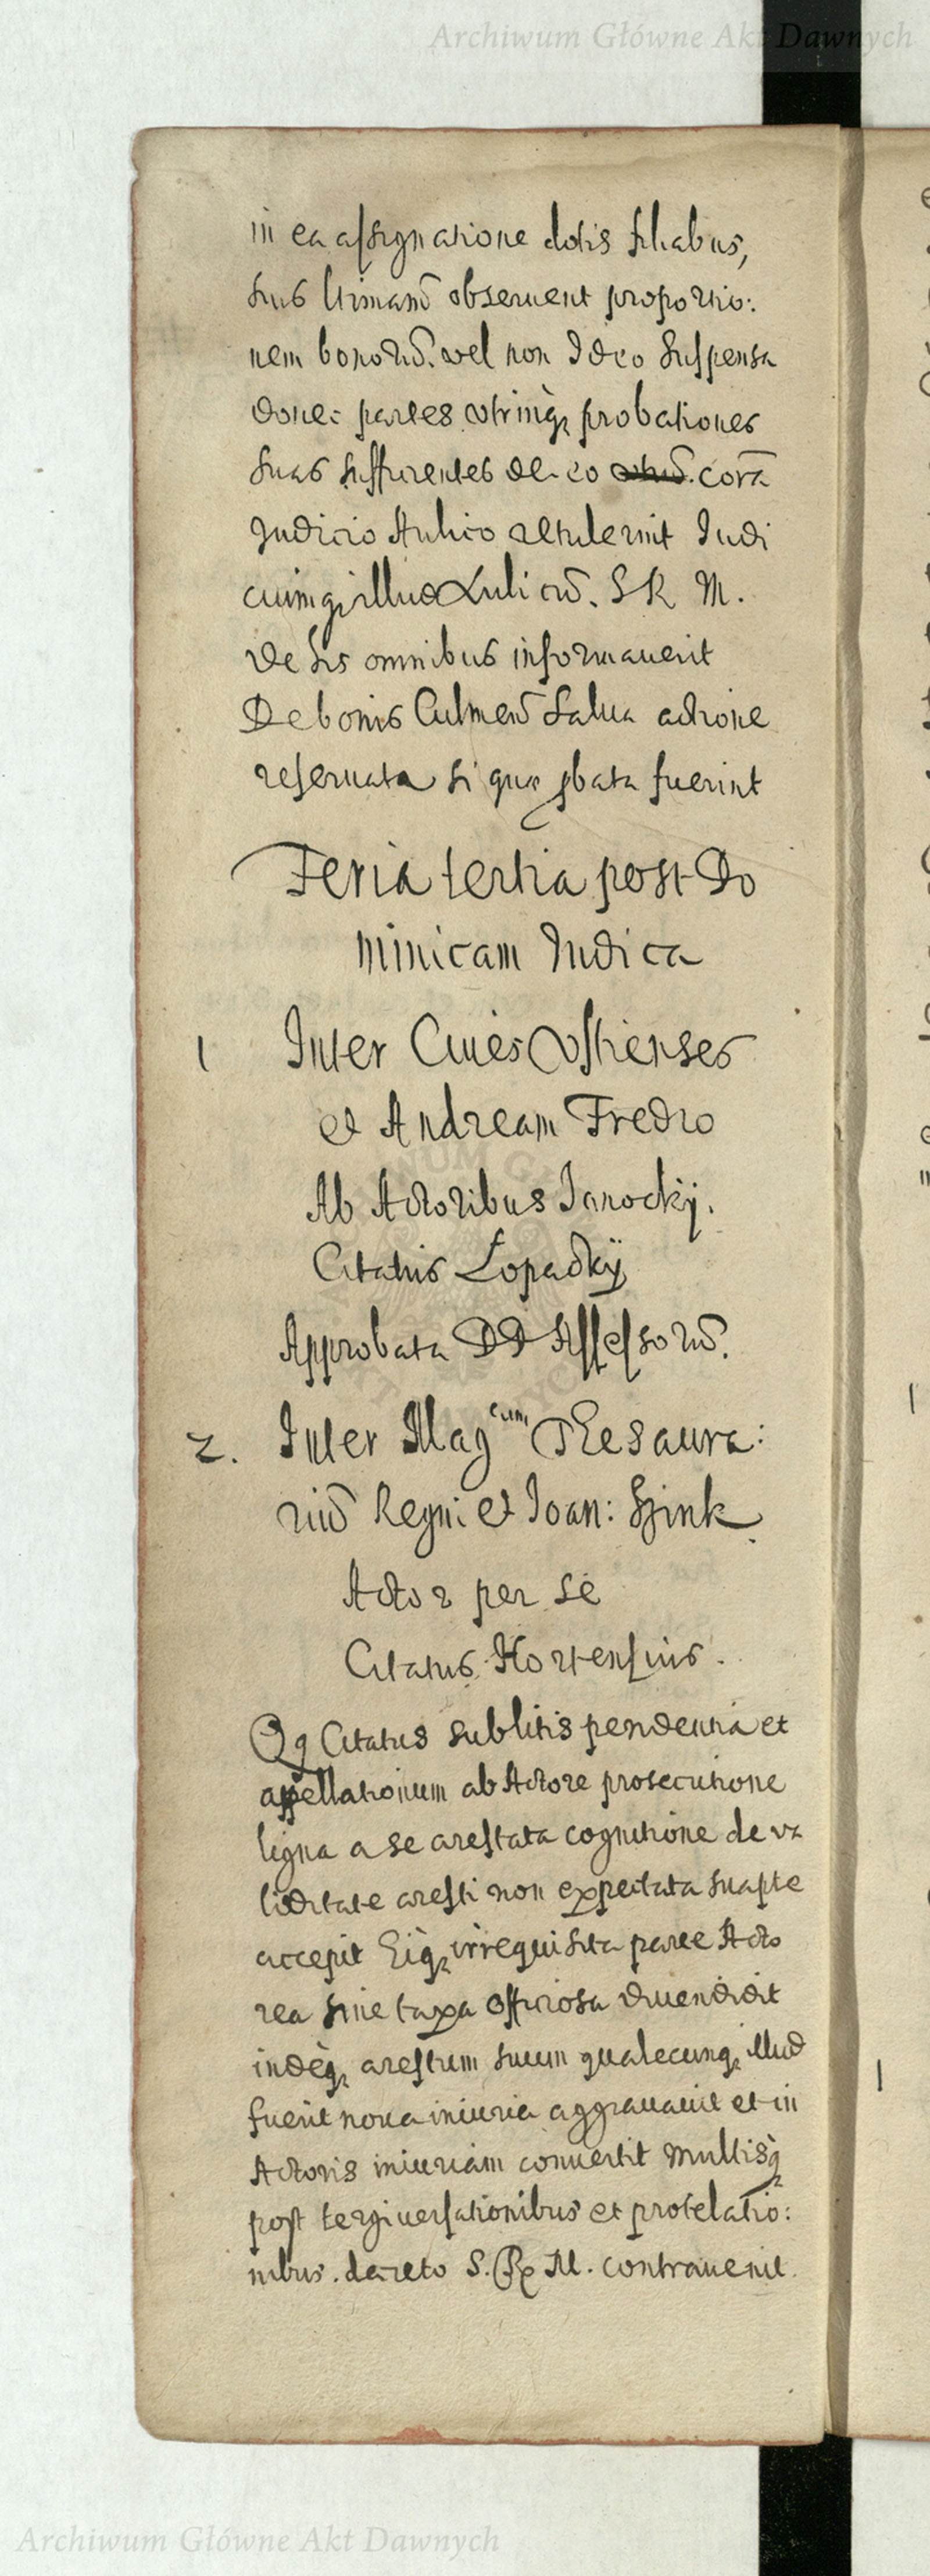 Archiwum Główne Akt Dawnych
in ea assignatione dotis filiabus,
suis observent proportio:
nem bonorũ. vel non Ideo suspensa
donec partes utrinq, probationes
suas sufficientes de eo corã
Judicio Aulico attulerint Judi
ciumq, illud Aulicũ. S R M.
de his omnibus informaverit
De bonis Culmeñ salva actione
reservata si qua pbata fuerint
Feria tertia post Do
minicam Iudica
1 Inter Cives Ustienses
et Andream Fredro
Ab Actoribus Janockÿ.
Citatus Lopackÿ
Approbata DD Assessorũ.
2. Inter Mag cum Thesaura:
riũ Regni et Joan: Szink
Actor per se
Citatus Hortensius.
Qq Citatus sub litis pendentia et
appellationum ab Actore prosecutione
ligna a se arestata cognitione de va
liditate aresti non expectata suapte
accepit Eiq, irrequisita parte Acto
rea sine taxa officiosa divendidit
indeq, arestum suum qualecunq, illud
fuerit nova iniuria aggravavit et in
Actoris iniuriam convertit multisq
post tergiversationibus et protelatio:
nibus. decreto S. R M. contravenit.
Archiwum Główne Akt Dawnych